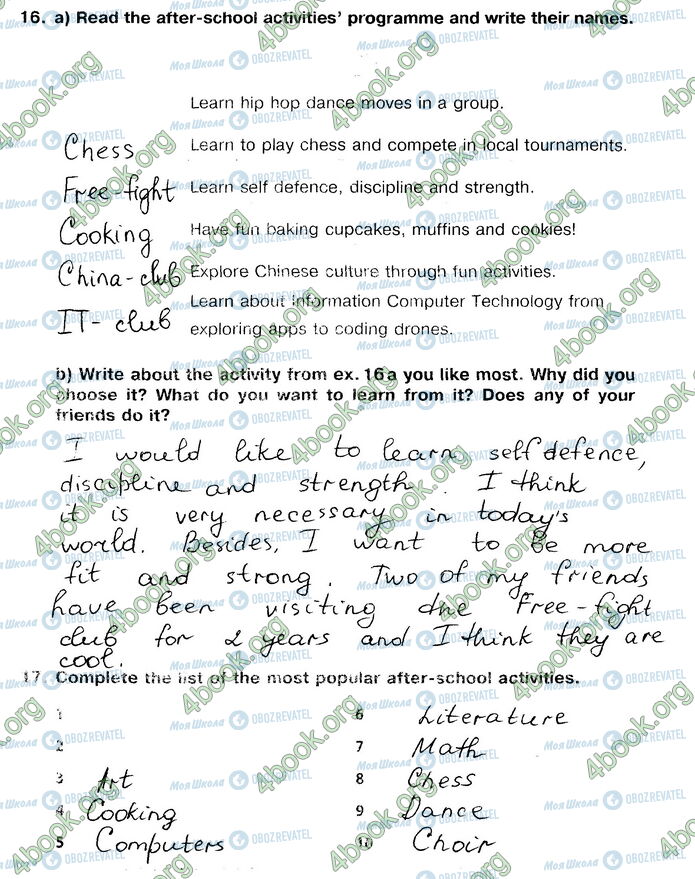 16. a) Read the after-school activities' programme and write their names.
Learn hip hop dance moves in a group.
Chess Learn to play chess and compete in local tournaments.
Free-fight Learn self defence, discipline and strength.
Cooking Have fun baking cupcakes, muffins and cookies!
China-club Explore Chinese culture through fun activities.
Learn about Information Computer Technology from
IT-club exploring apps to coding drones.
b) Write about the activity from ex. 16a you like most. Why did you
choose it? What do you want to learn from it? Does any of your
friends do it?
I would like to learn self defence,
discipline and strength. I think
it is very necessary in today's
world. Besides, I want to be more
fit and strong. Two of my friends
have been visiting the Free-fight
club for 2 years and I think they are
cool.
17. Complete the list of the most popular after-school activities.
1 6 Literature
2 7 Math
3 Art 8 Chess
4 Cooking 9 Dance
5 Computers 10 Choir
4book.org
Моя Школа OBOZREVATEL